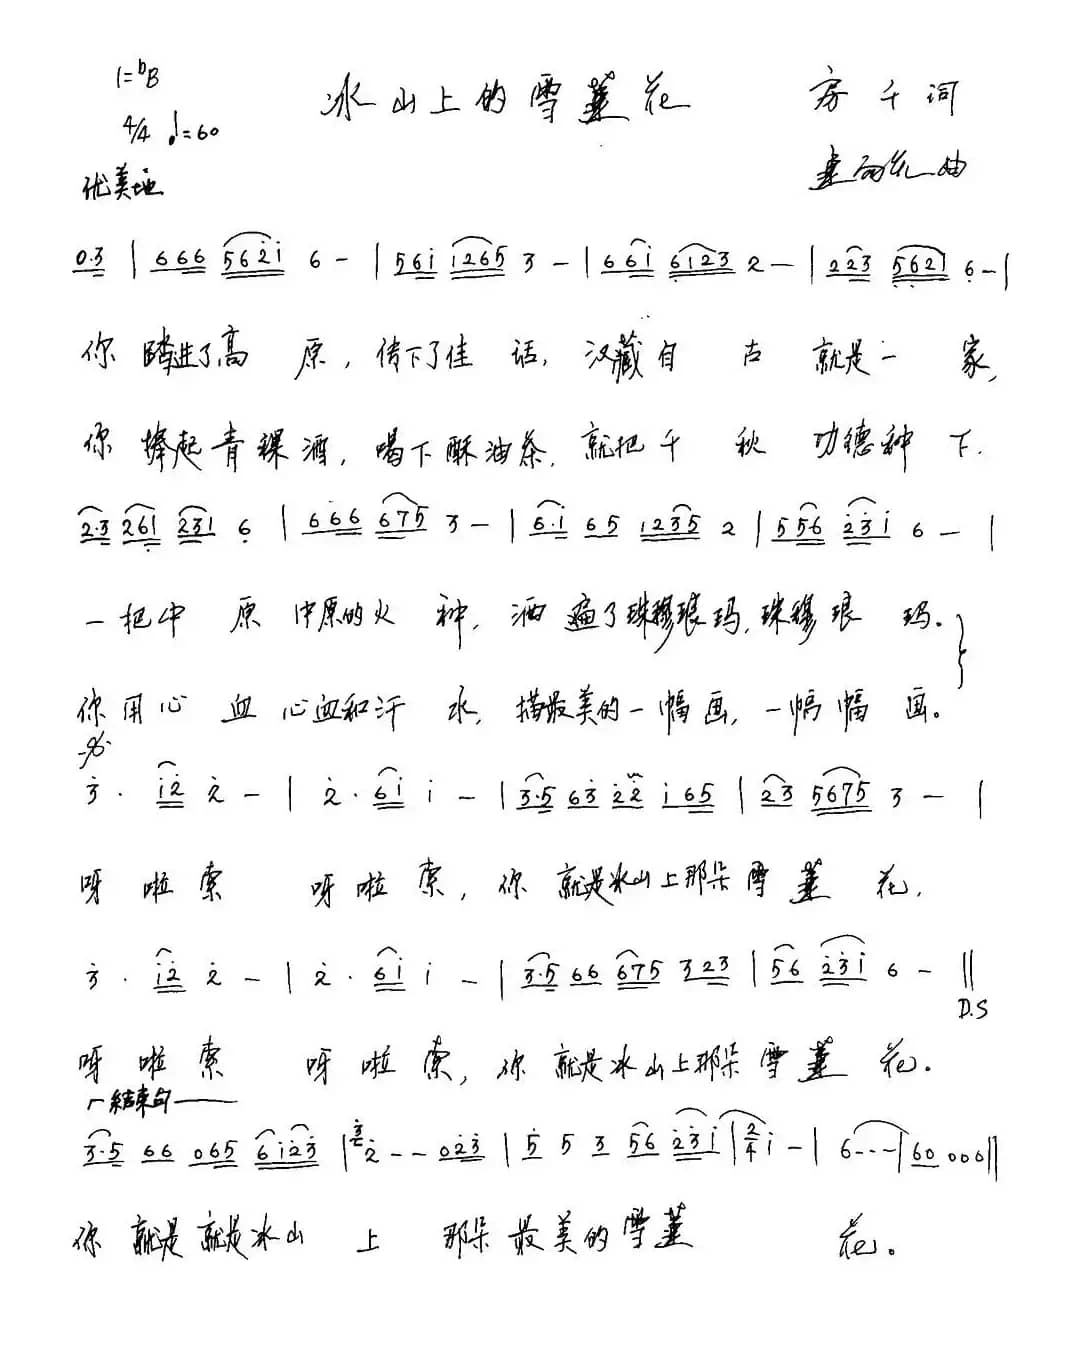 1=♭B
冰山上的雪莲花
房千词
4/4 ♩=60
曲
优美地
0.3 | 666 562̇1̇ 6 - | 561̇ 1̇265 3 - | 661̇ 6̣123 2 - | 223 5̣6̣21 6̣ - |
你踏进了高原，传下了佳话，汉藏自古就是一家，
你捧起青稞酒，喝下酥油茶，就把千秋功德种下.
2.3 26̣1 231 6̣ | 666 675 3 - | 6.1̇ 65 1235 2 | 556 2̇3̇1̇ 6 - |
一把中原中原的火种，洒遍了珠穆琅玛，珠穆琅玛。
你用心血心血和汗水，描最美的一幅画，一幅幅画。
3̇. 1̇2̇ 2̇ - | 2̇. 61̇ 1̇ - | 3.5 63̇ 2̇2̇ 1̇65 | 23 5675 3 - |
呀啦索 呀啦索，你就是冰山上那朵雪莲花，
3̇. 1̇2̇ 2̇ - | 2̇. 61̇ 1̇ - | 3.5 66 675 323 | 56 2̇3̇1̇ 6 - ‖
D.S
呀啦索 呀啦索，你就是冰山上那朵雪莲花。
结束句
3.5 66 065 61̇2̇3̇ | 3̇2̇ - - 02̇3̇ | 5̇ 5 3 56 2̇3̇1̇ | 2/4 1̇ - | 6 - - - | 60 000 ‖
你就是就是冰山上那朵最美的雪莲花。